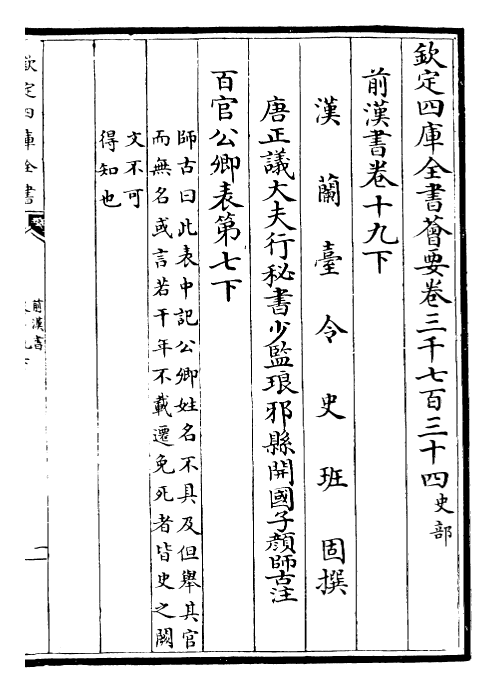 欽定四庫全書薈要卷三千七百三十四史部
前漢書卷十九下
漢蘭臺令史班固撰
唐正議大夫行秘書少監琅邪縣開國子顏師古注
百官公卿表第七下
師古曰此表中記公卿姓名不具及但舉其官
而無名或言若干年不載遷免死者皆史之闕
文不可
得知也
欽定四庫全書
前漢書